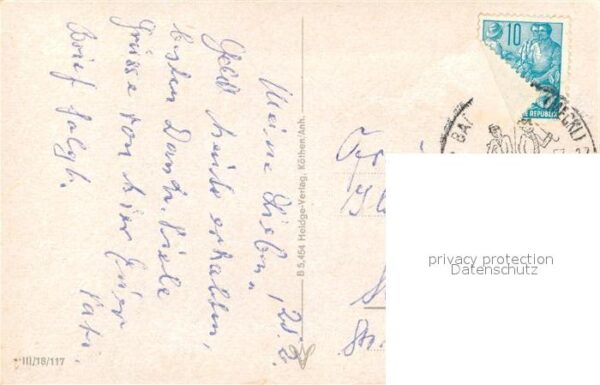 Meine Lieben, 
Geld heute erhalten,
besten Dank. Viele
Grüsse von hier Euer
Vati.
Brief folgt.
B 5,454 Heldge-Verlag, Köthen/Anh.
III/18/117
10
REPUBLIK
BAD
privacy protection
Datenschutz
Str.